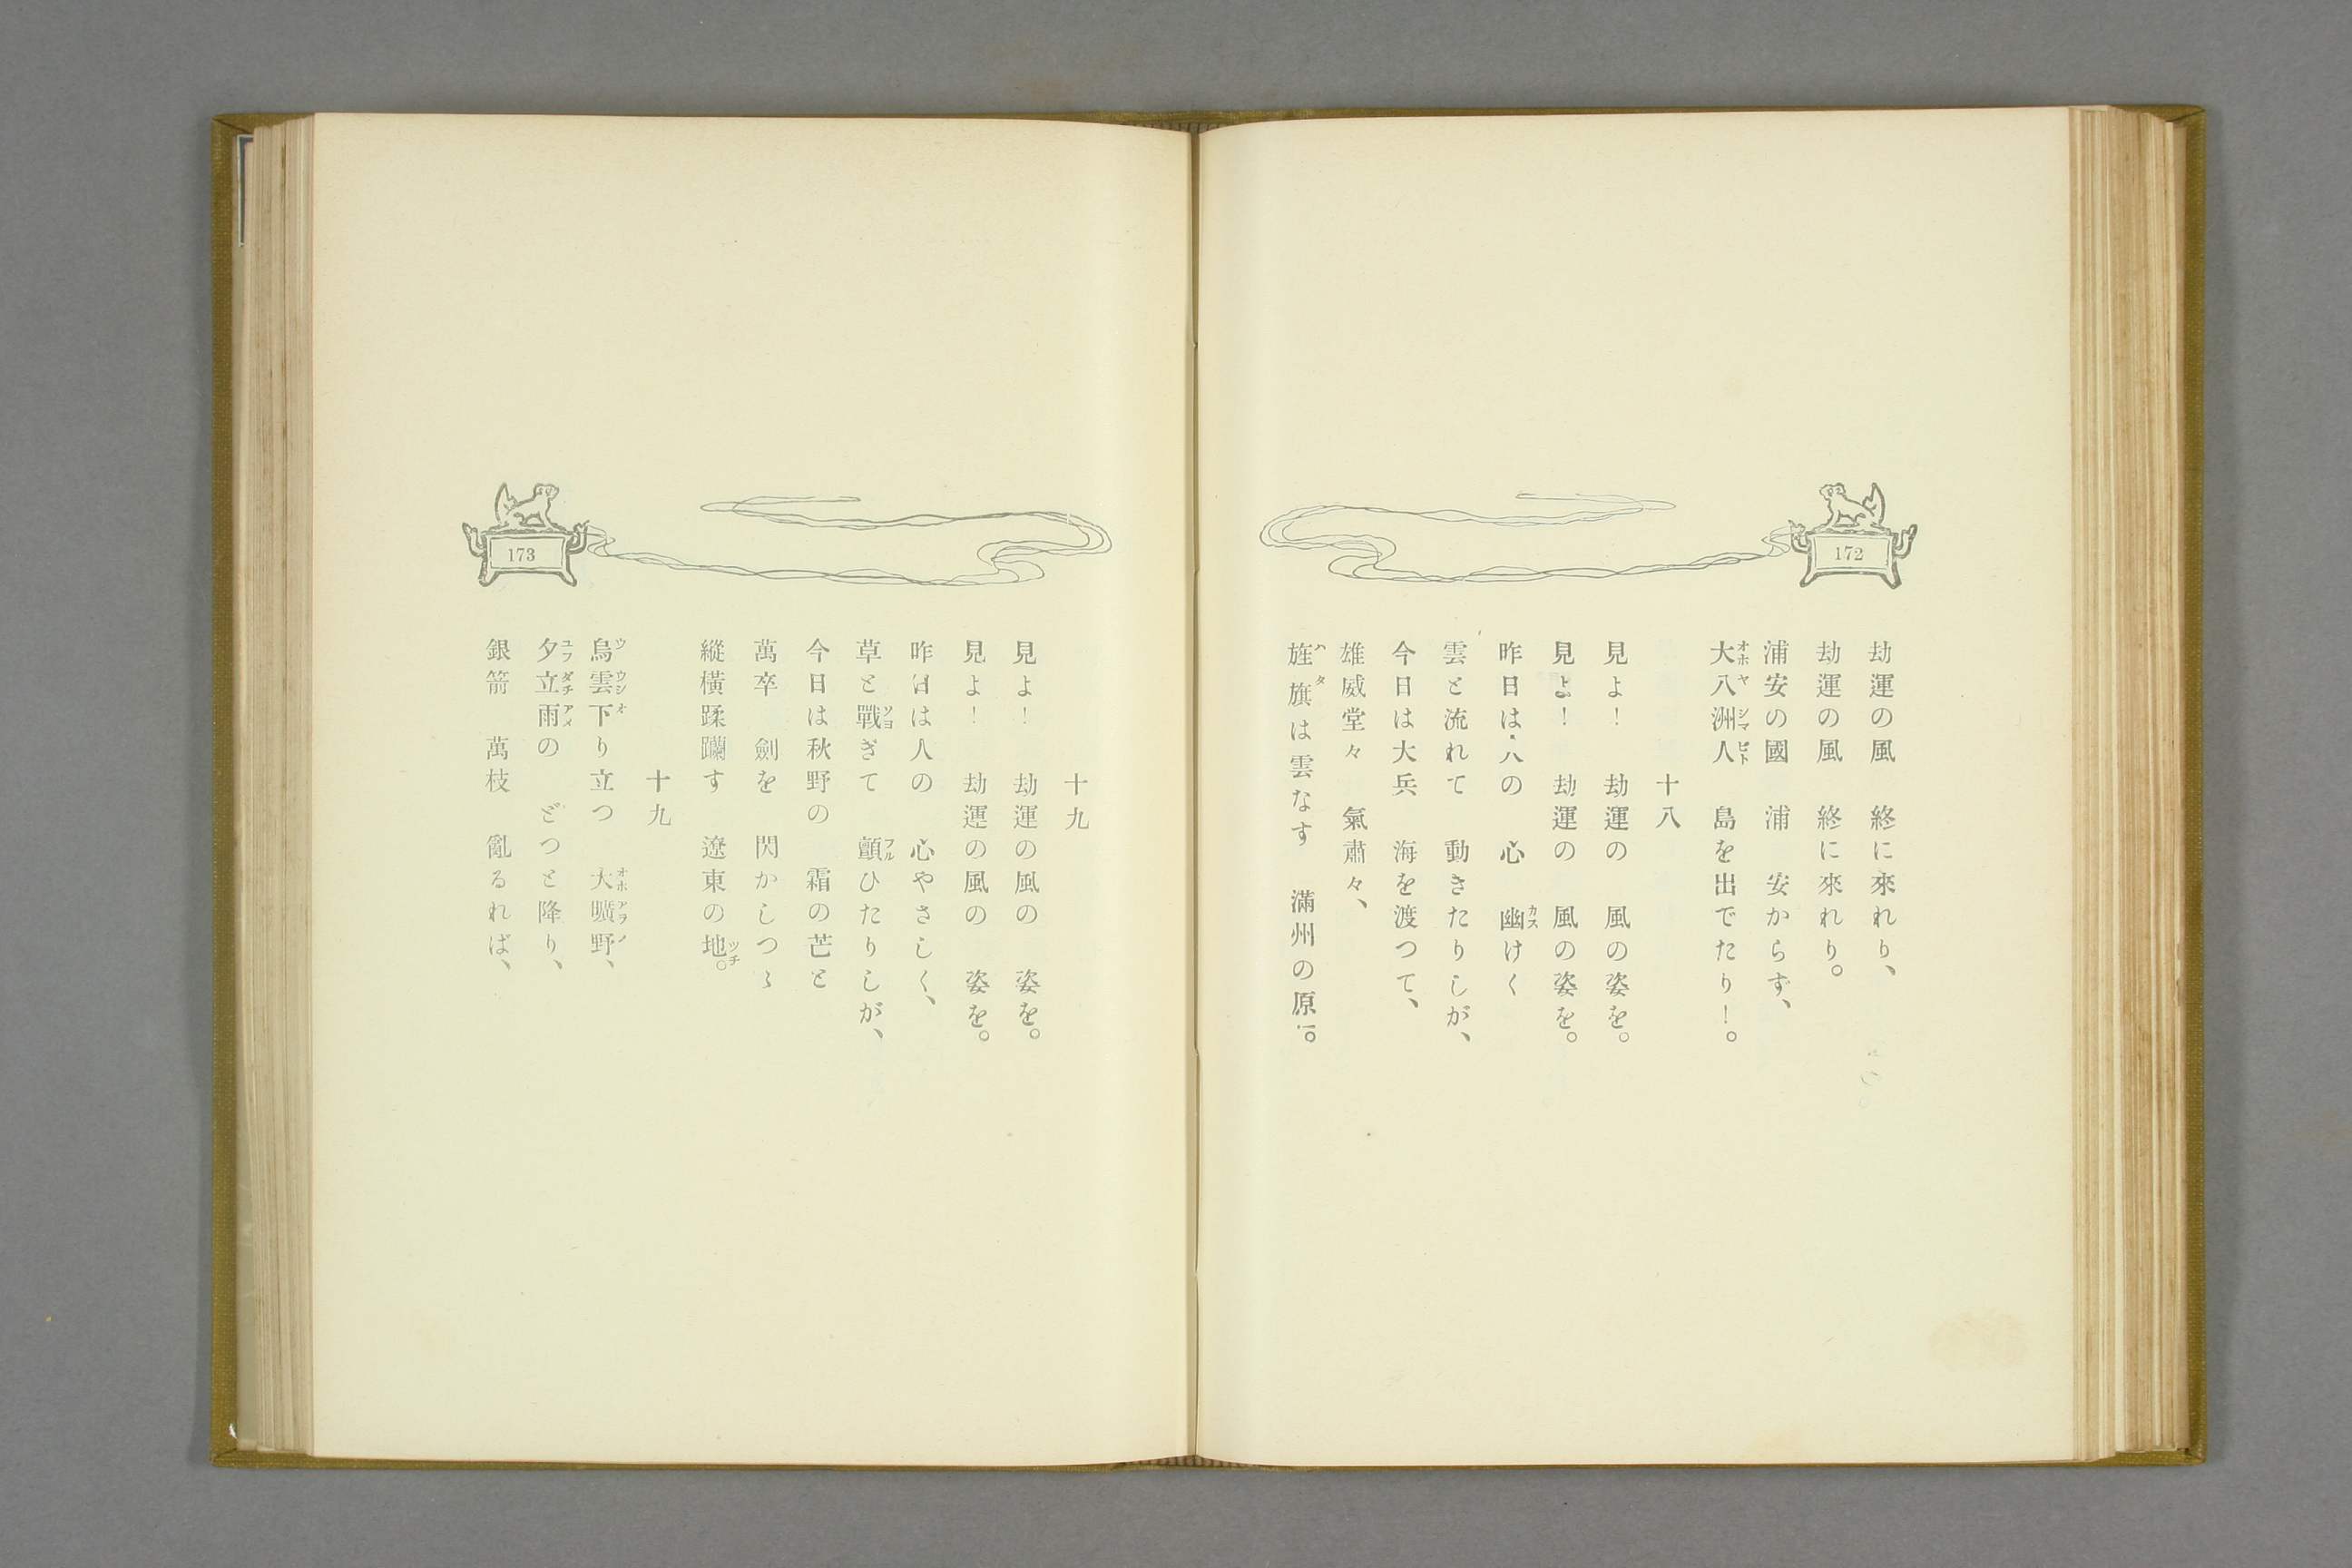 172
劫運の風　終に來れり、
劫運の風　終に來れり。
浦安の國　浦　安からず、
大八洲人　島を出でたり！。
十八
見よ！　劫運の　風の姿を。
見よ！　劫運の　風の姿を。
昨日は人の　心　幽けく
雲と流れて　動きたりしが、
今日は大兵　海を渡つて、
雄威堂々　氣肅々、
旌旗は雲なす　滿州の原。
173
十九
見よ！　劫運の風の　姿を。
見よ！　劫運の風の　姿を。
昨日は人の　心やさしく、
草と戰ぎて　顫ひたりしが、
今日は秋野の　霜の芒と
萬卒　劍を　閃かしつゝ
縱橫蹂躪す　遼東の地。
十九
烏雲下り立つ　大曠野、
夕立雨の　どつと降り、
銀箭　萬枝　亂るれば、